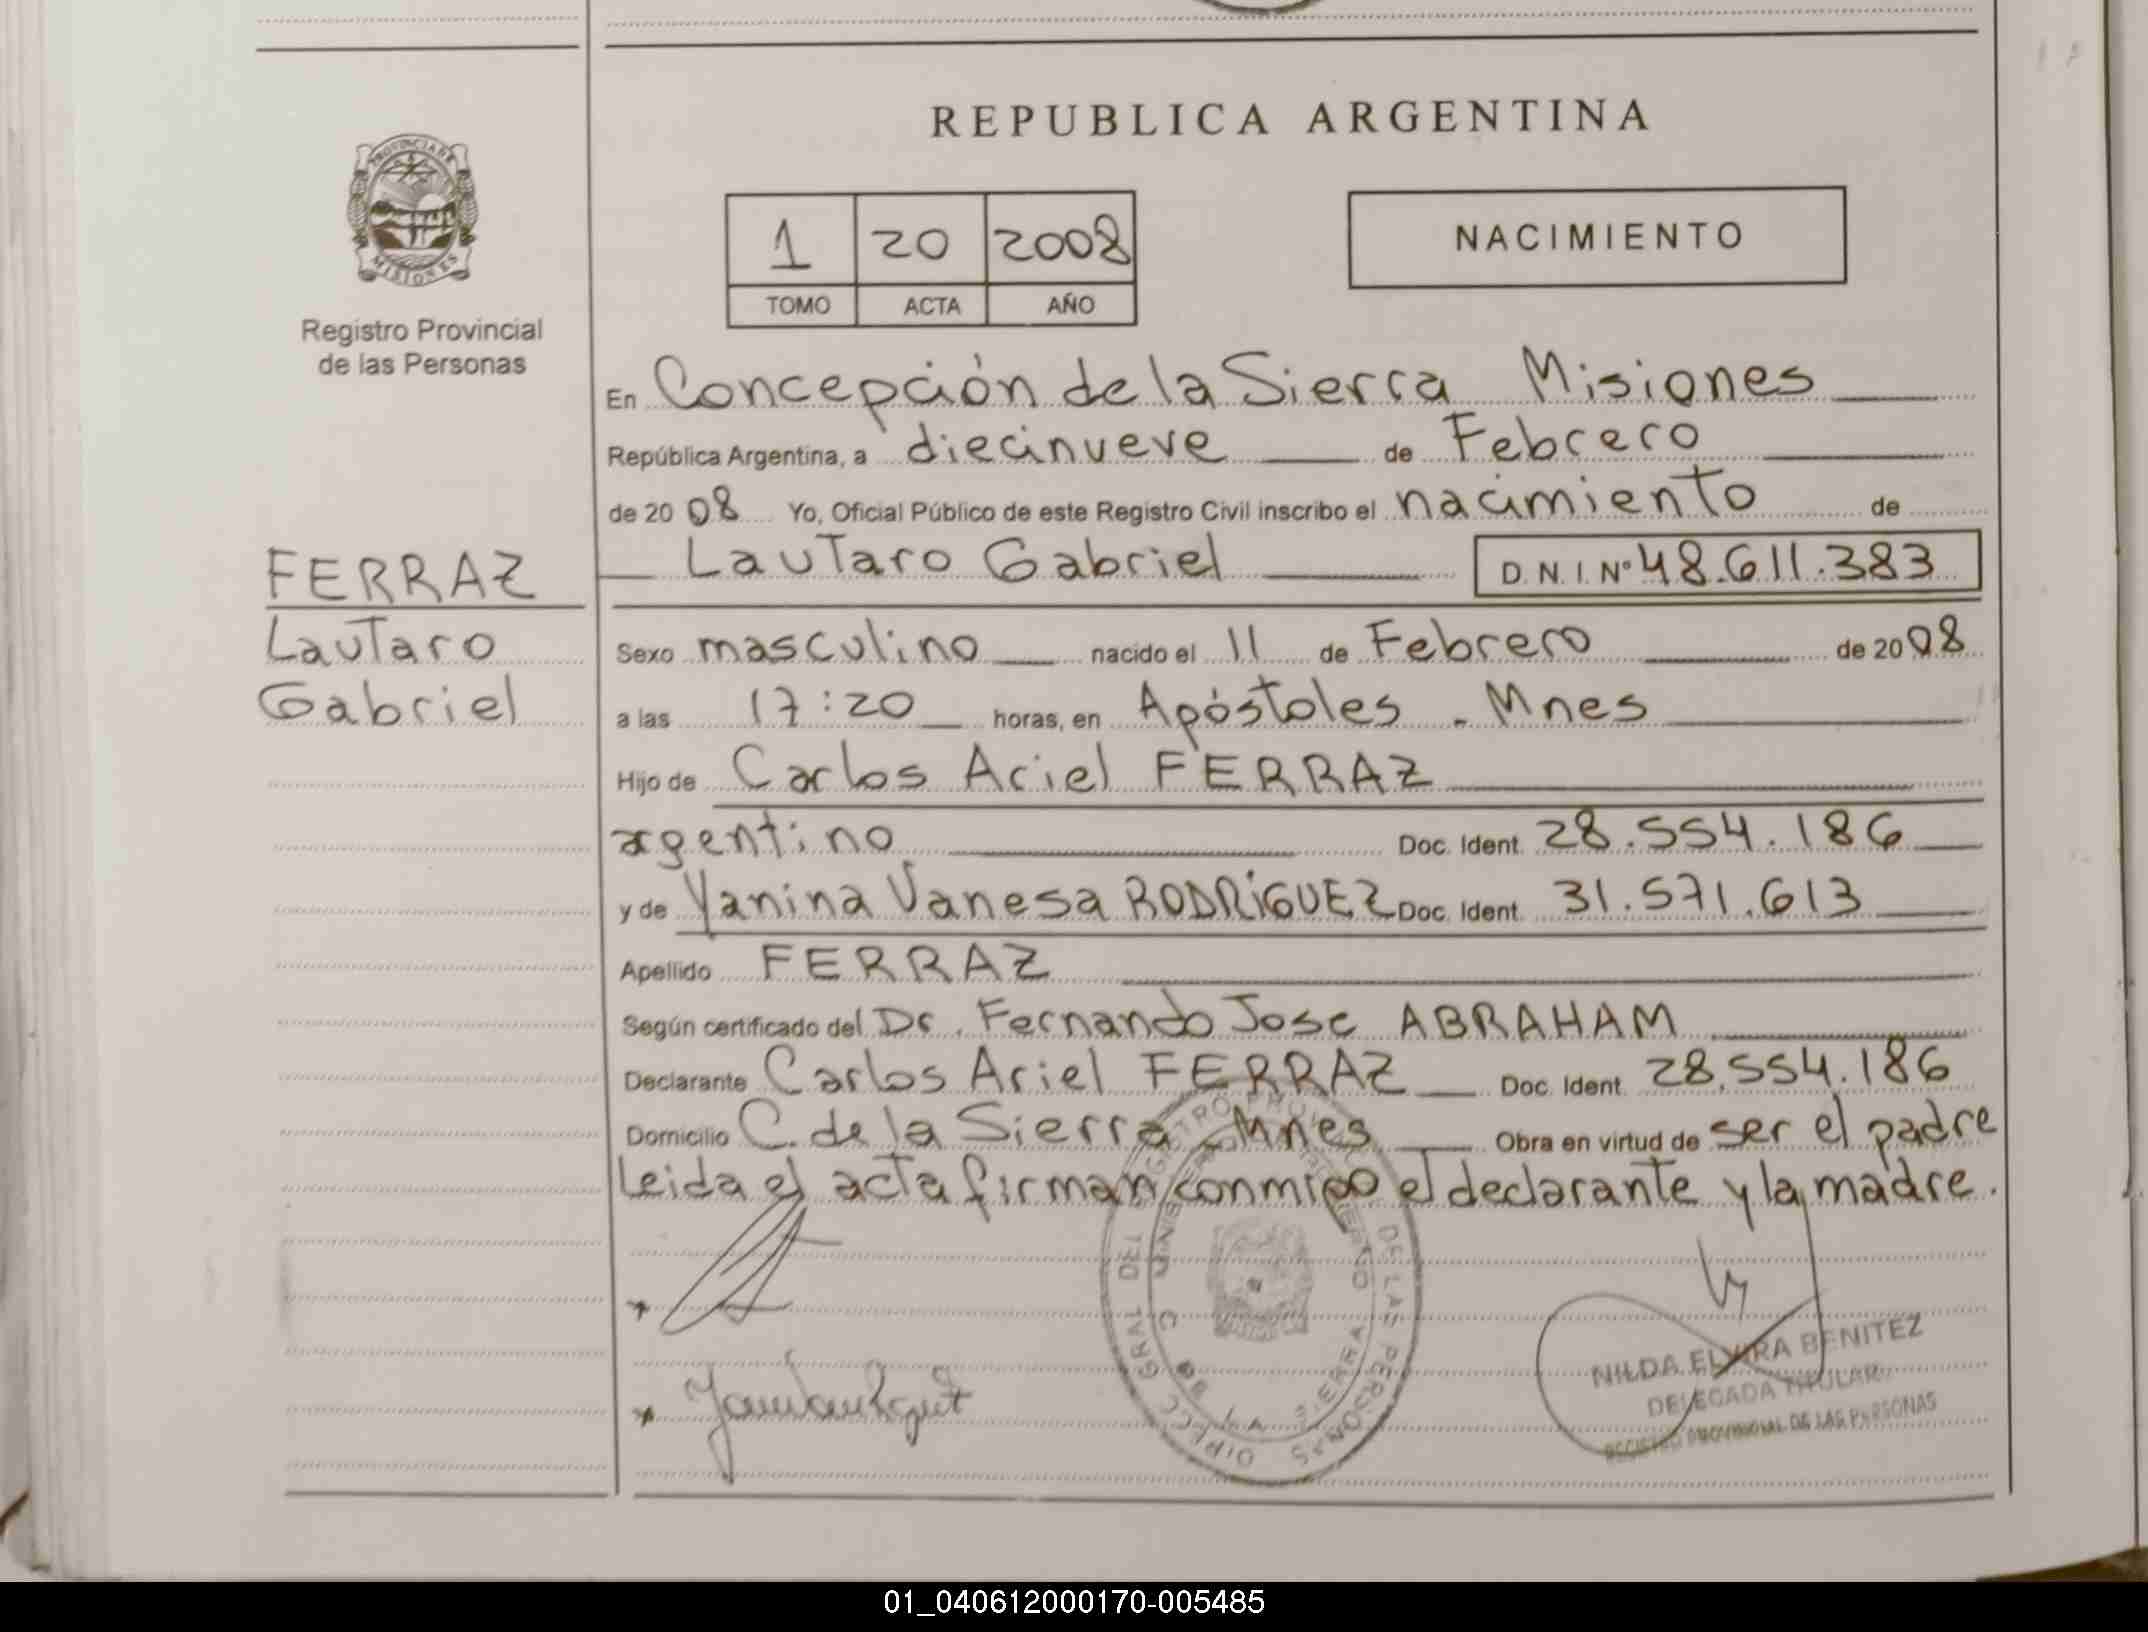 REPUBLICA ARGENTINA
PROVINCIA DE
MISIONES
Registro Provincial
de las Personas
1 20 2008
TOMO ACTA AÑO
NACIMIENTO
En Concepción de la Sierra Misiones
República Argentina, a diecinueve de Febrero
de 2008 Yo, Oficial Público de este Registro Civil inscribo el nacimiento de
Lautaro Gabriel D.N.I. Nº 48.611.383
FERRAZ
Lautaro
Gabriel
Sexo masculino nacido el 11 de Febrero de 2008
a las 17:20 horas, en Apóstoles - Mnes
Hijo de Carlos Ariel FERRAZ
argentino Doc. Ident. 28.554.186
y de Yanina Vanesa RODRÍGUEZ Doc. Ident. 31.571.613
Apellido FERRAZ
Según certificado del Dr. Fernando Jose ABRAHAM
Declarante Carlos Ariel FERRAZ Doc. Ident. 28.554.186
Domicilio C. de la Sierra - Mnes Obra en virtud de ser el padre
Leida el acta firman conmigo el declarante y la madre.
DIRECC GRAL DE REGISTRO PROVINCIAL DE LAS PERSONAS
NILDA ELVIRA BENITEZ
DELEGADA TITULAR
REGISTRO PROVINCIAL DE LAS PERSONAS
01_040612000170-005485